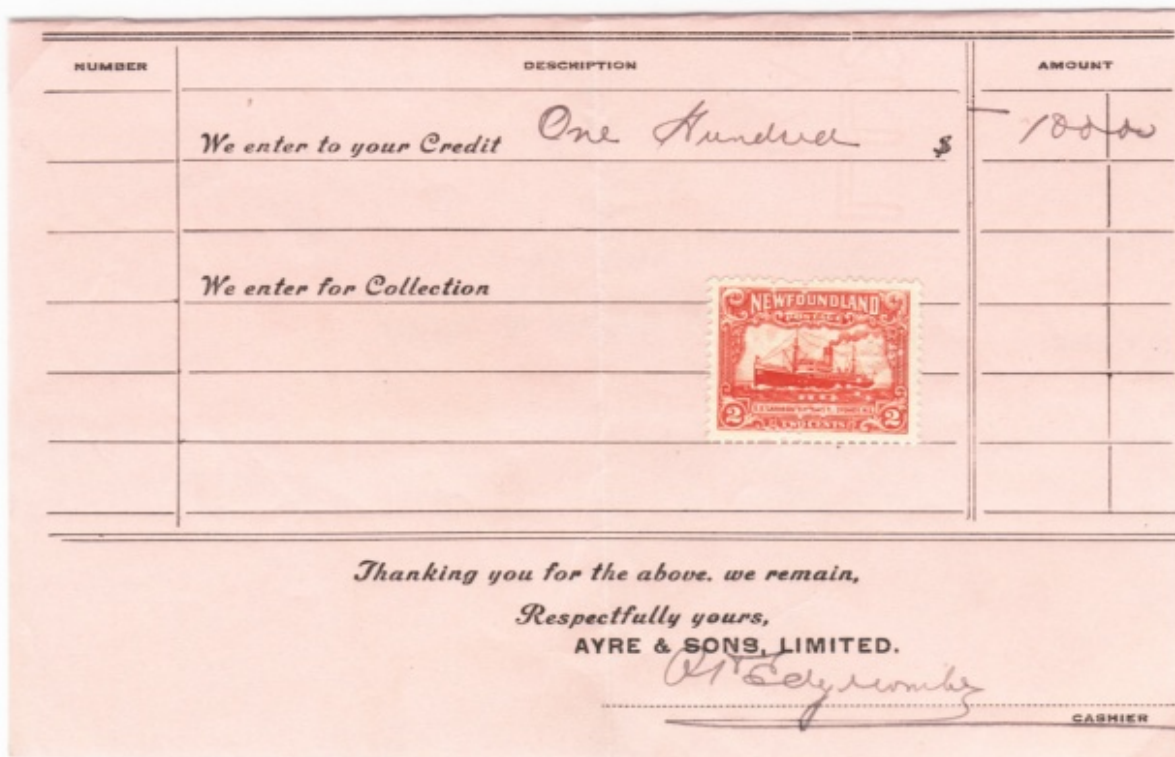 NUMBER DESCRIPTION AMOUNT
We enter to your Credit One Hundred $ 100 00
We enter for Collection
NEWFOUNDLAND
POSTAGE
2 2
TWO CENTS
Thanking you for the above, we remain,
Respectfully yours,
AYRE & SONS, LIMITED.
Edgecombe
CASHIER